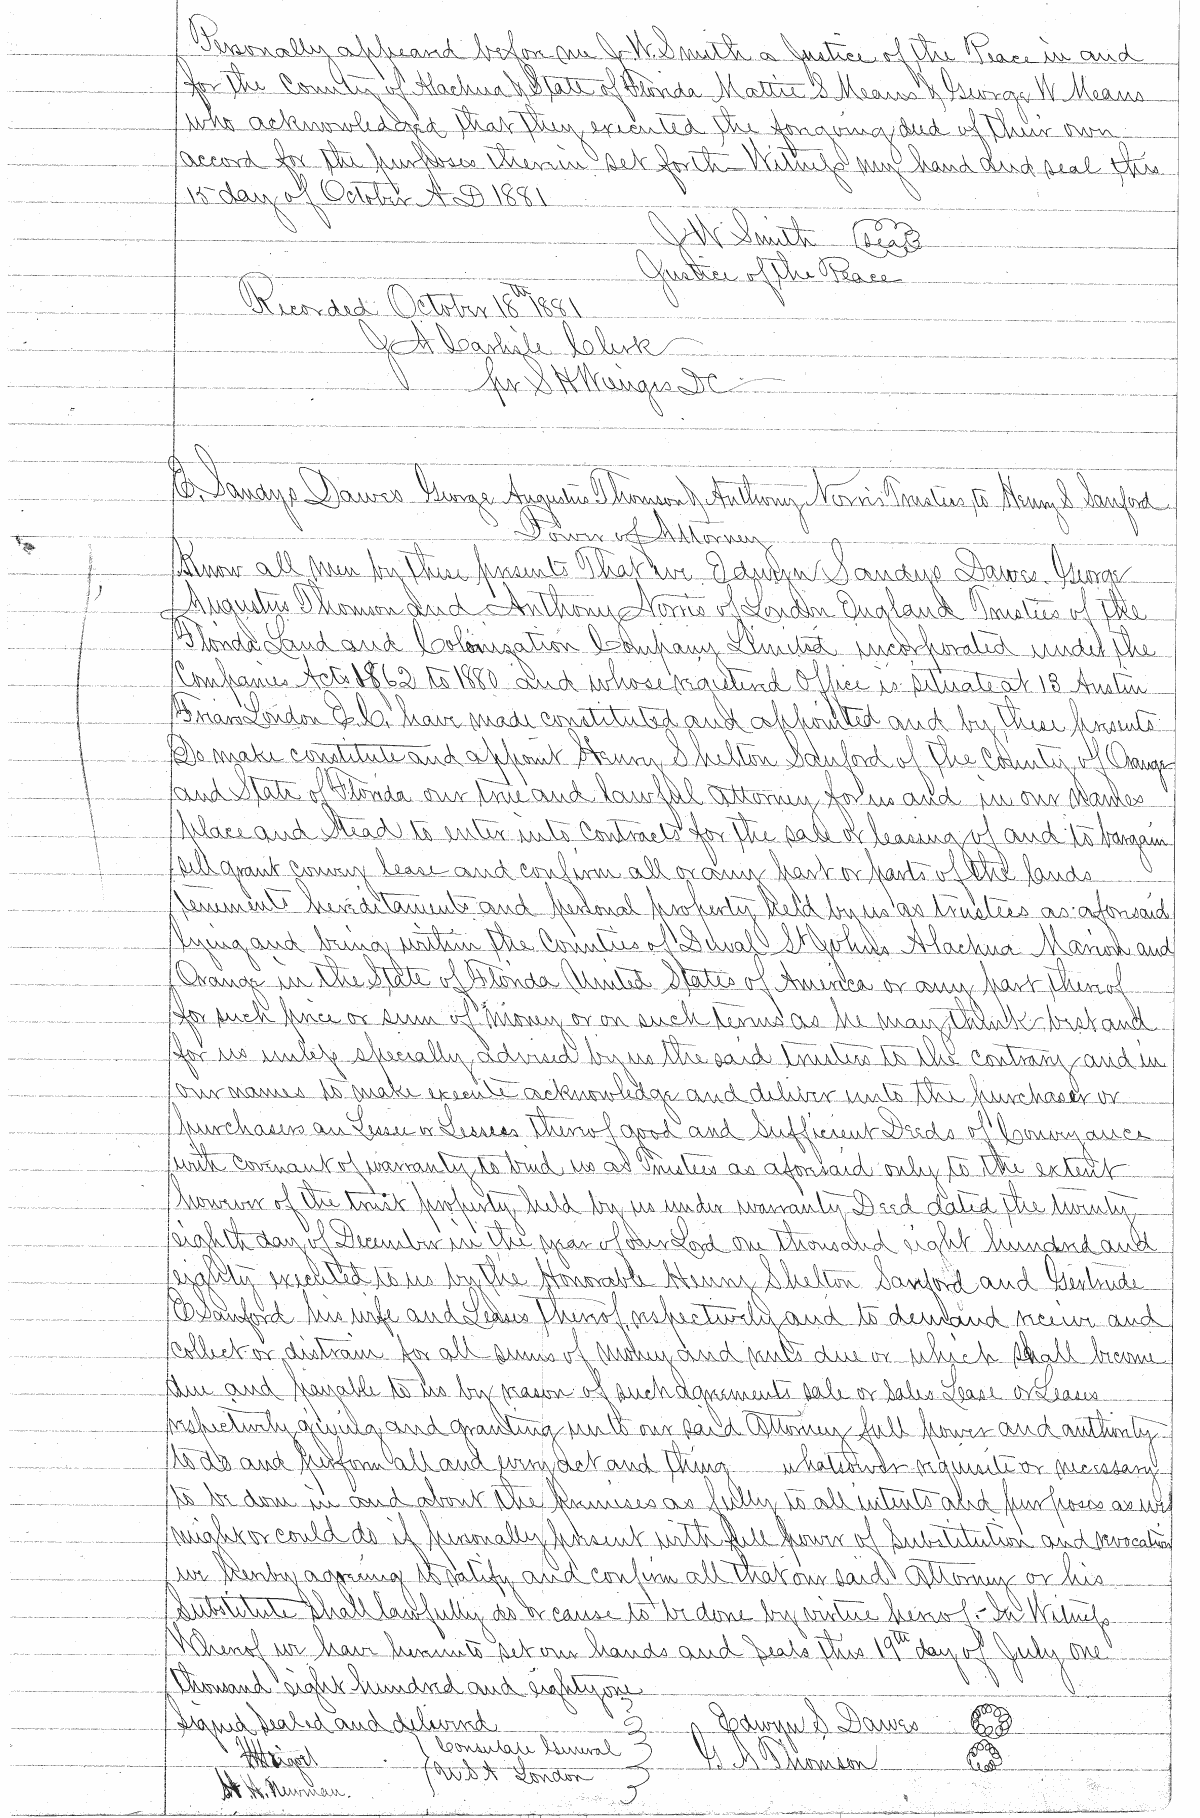 Personally appeared before me J. W. Smith a Justice of the Peace in and
for the County of Alachua & State of Florida Mattie S Means & George W Means
who acknowledged that they executed the forgoing deed of their own
accord for the purposes therein set forth Witness my hand and seal this
15 day of October A D 1881
J W Smith (Seal)
Justice of the Peace
Recorded October 18th 1881
J A Carlisle Clerk
pr S H Wienges DC
E. Sandys Dawes George Augustus Thomson & Anthony Norris Trustees to Henry S Sanford
Power of Attorney
Know all men by these presents That we Edwyn Sandys Dawes. George
Augustus Thomson and Anthony Norris of London England Trustees of the
Florida Land and Colonization Company Limited incorporated under the
Companies Acts 1862 to 1880 and whose registered Office is situate at 13 Austin
Friars London E. C. have made constituted and appointed and by these presents
Do make constitute and appoint Henry Shelton Sanford of the County of Orange
and State of Florida our true and lawful attorney for us and in our names
place and stead to enter into contracts for the sale or leasing of and to bargain
sell grant convey lease and confirm all or any part or parts of the lands
tenements hereditaments and personal property held by us as trustees as aforesaid
lying and being within the Counties of Duval St Johns Alachua Marion and
Orange in the State of Florida United States of America or any part thereof
for such price or sum of money or on such terms as he may think best and
for us unless specially advised by us the said trustees to the contrary and in
our names to make execute acknowledge and deliver unto the purchaser or
purchasers an Lessee or Lessees thereof good and sufficient Deeds of Conveyance
with covenant of warranty to bind us as Trustees as aforesaid only to the extent
however of the trust property held by us under warranty Deed dated the twenty
eighth day of December in the year of our Lord one thousand eight hundred and
eighty executed to us by the Honorable Henry Shelton Sanford and Gertrude
E Sanford his wife and Leases thereof respectively and to demand receive and
collect or distrain for all sums of money and rents due or which shall become
due and payable to us by reason of such agreements sale or sales Lease or Leases
respectively giving and granting unto our said Attorney full power and authority
to do and perform all and every act and thing whatsoever requisite or necessary
to be done in and about the premises as fully to all intents and purposes as we
might or could do if personally present with full power of substitution and revocation
we hereby agreeing to ratify and confirm all that our said Attorney or his
substitute shall lawfully do or cause to be done by virtue hereof. - In Witness
Whereof we have hereunto set our hands and seals this 19th day of July one
thousand eight hundred and eighty one
Signed sealed and delivered Edwyn S. Dawes
Consulate General G A Thomson
H. Newman. U.S A London